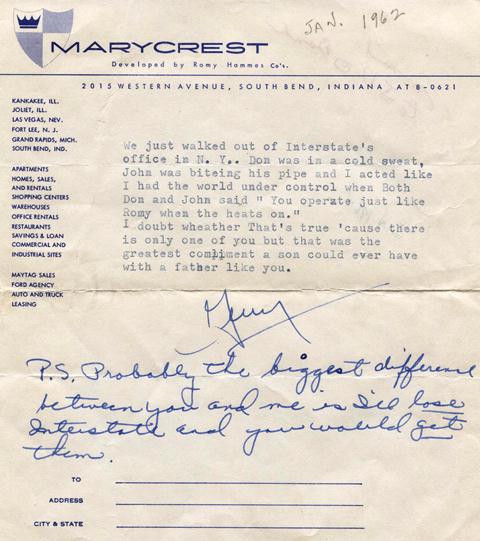 JAN. 1962
MARYCREST
Developed by Romy Hammes Co's.
2015 WESTERN AVENUE, SOUTH BEND, INDIANA AT 8-0621
KANKAKEE, ILL.
JOLIET, ILL.
LAS VEGAS, NEV.
FORT LEE, N. J.
GRAND RAPIDS, MICH.
SOUTH BEND, IND.
APARTMENTS
HOMES, SALES,
AND RENTALS
SHOPPING CENTERS
WAREHOUSES
OFFICE RENTALS
RESTAURANTS
SAVINGS & LOAN
COMMERCIAL AND
INDUSTRIAL SITES
MAYTAG SALES
FORD AGENCY
AUTO AND TRUCK
LEASING
We just walked out of Interstate's
office in N. Y.. Don was in a cold sweat,
John was biteing his pipe and I acted like
I had the world under control when Both
Don and John said " You operate just like
Romy when the heats on."
I doubt wheather That's true 'cause there
is only one of you but that was the
greatest comliment a son could ever have
with a father like you.
Jerry
P.S. Probably the biggest difference
between you and me is I'll lose
Interstate and you would get
them.
TO
ADDRESS
CITY & STATE